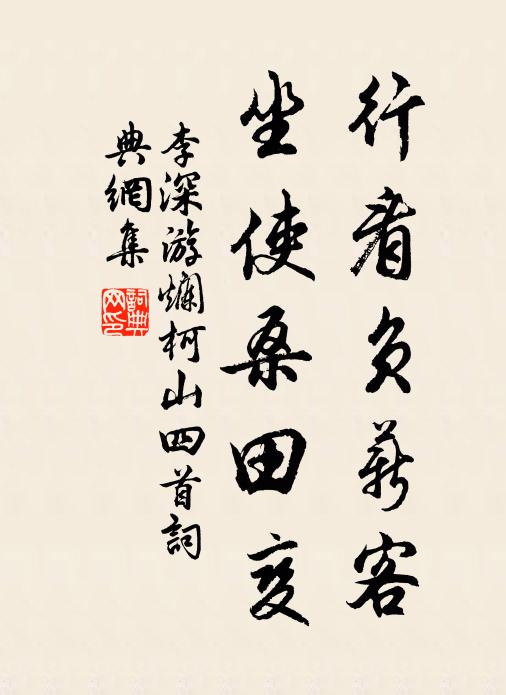 行看负薪客
坐使桑田变
李深游爛柯山四首詞
典網集
詞典
网印